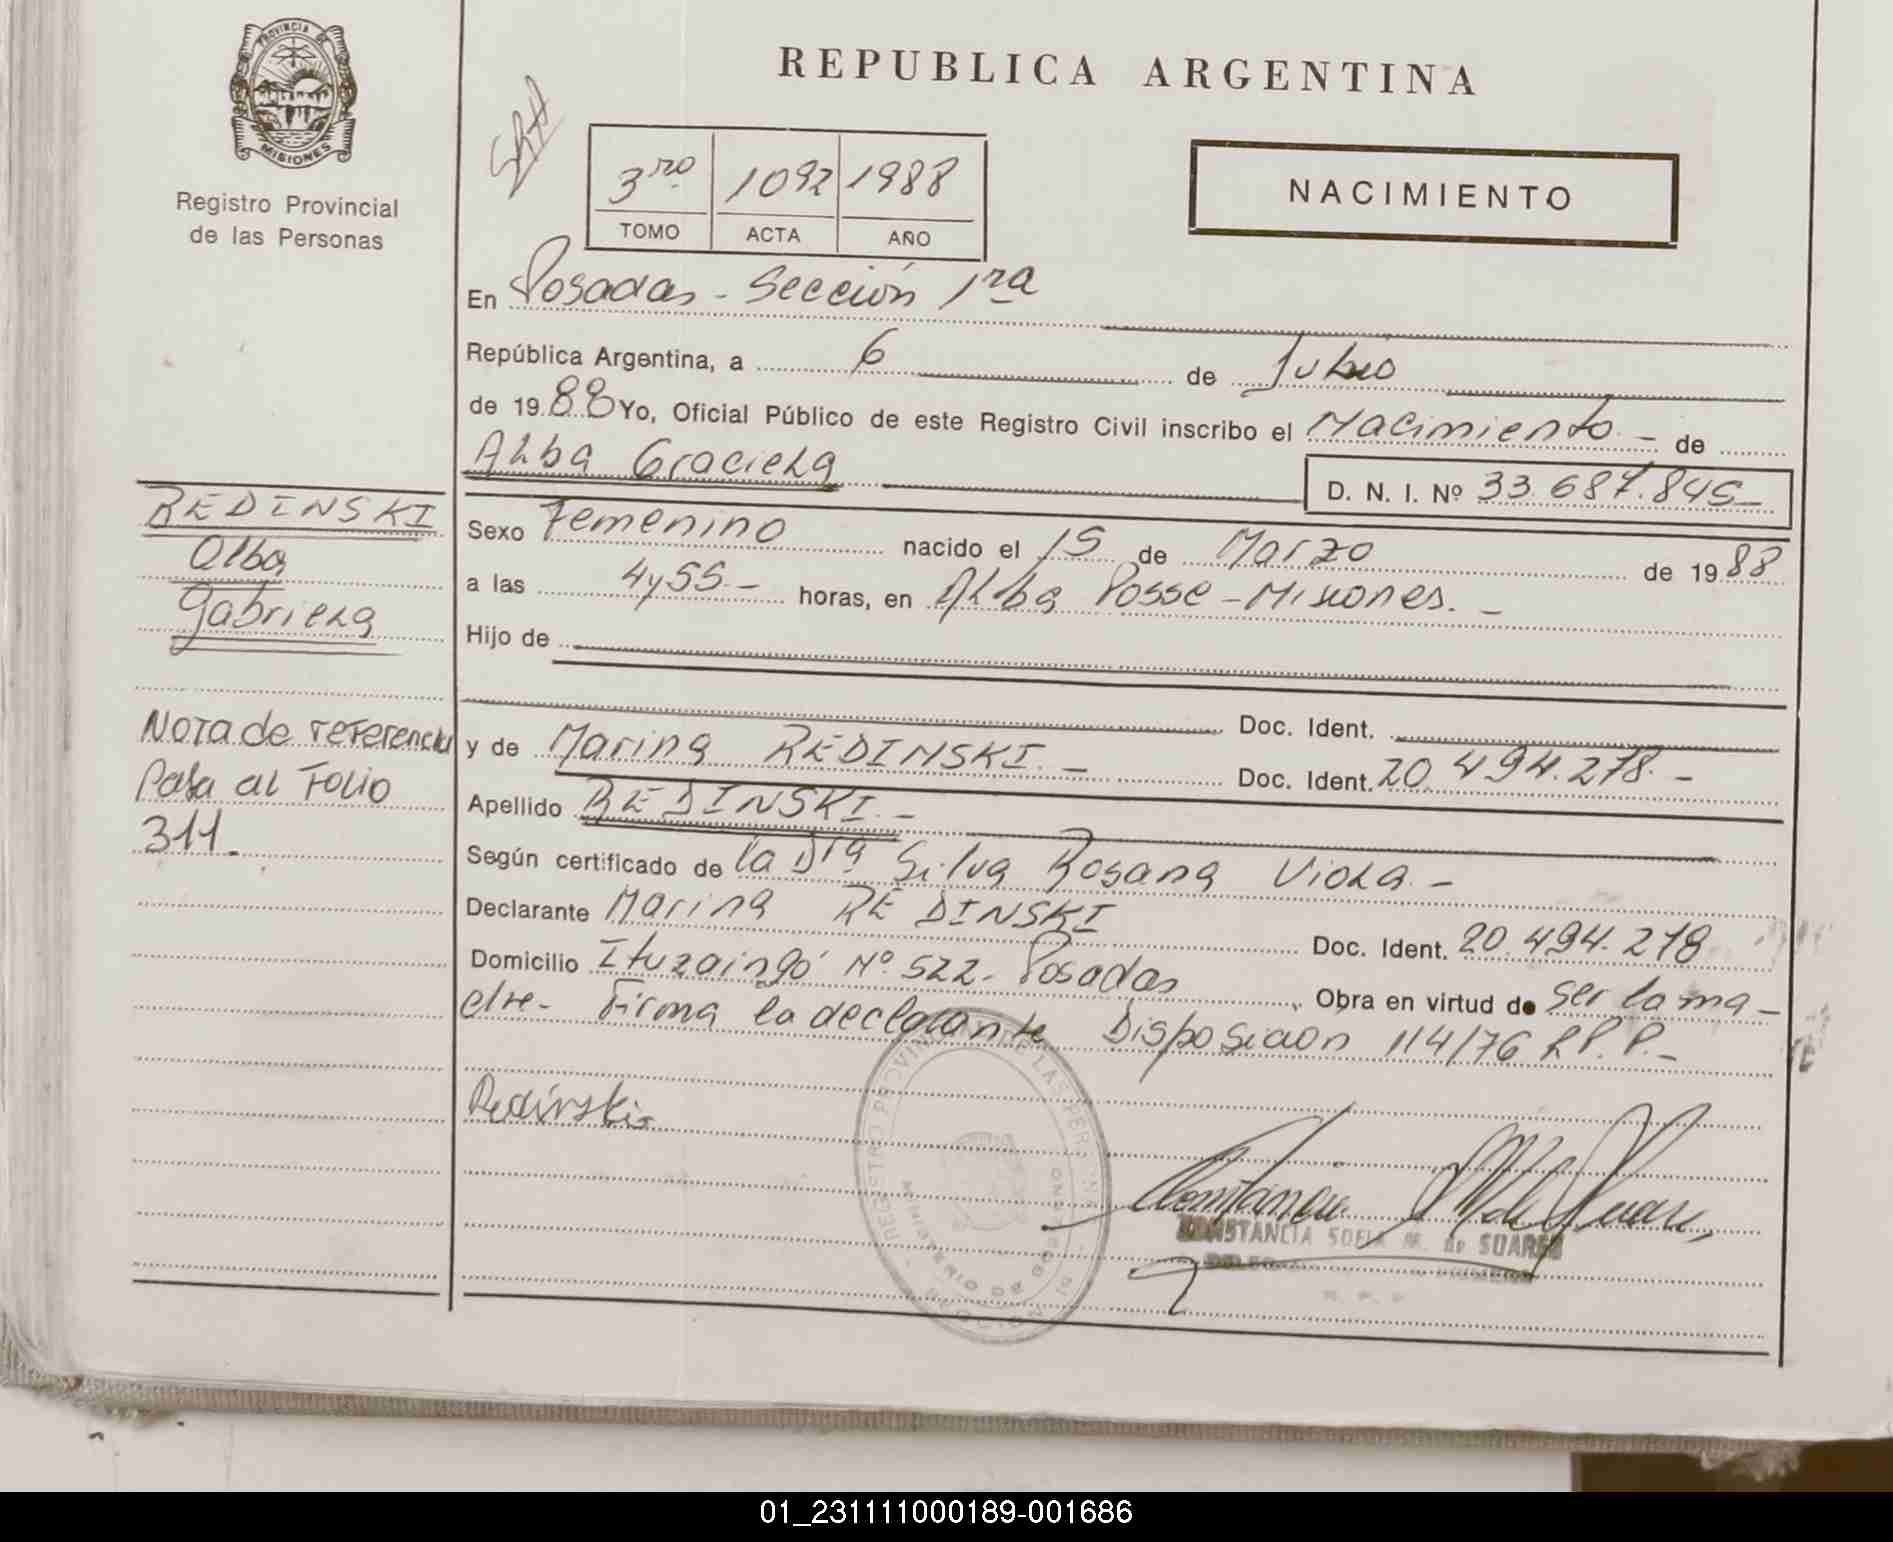 PROVINCIA DE
MISIONES
Registro Provincial
de las Personas
REPUBLICA ARGENTINA
3ro 1092 1988
TOMO ACTA AÑO
NACIMIENTO
En Posadas - Sección 1ra
República Argentina, a 6 de Julio
de 1988 Yo, Oficial Público de este Registro Civil inscribo el Nacimiento - de
Alba Graciela
D. N. I. Nº 33.687.845-
REDINSKI
Alba
Gabriela
Sexo Femenino nacido el 15 de Marzo de 1988
a las 4y55- horas, en Alba Posse - Misiones. -
Hijo de
Doc. Ident.
Nota de referencia
Pasa al Folio
311.
y de Marina REDINSKI. - Doc. Ident. 20.494.278. -
Apellido REDINSKI. -
Según certificado de la Dra Silva Rosana Viola -
Declarante Marina REDINSKI Doc. Ident. 20.494.278
Domicilio Ituzaingó Nº 522 - Posadas Obra en virtud de ser la ma-
dre- Firma la declarante Disposicion 114/76 R.P.P. -
Redinski
REGISTRO PROVINCIAL DE LAS PERSONAS
MINISTERIO DE GOBIERNO
CONSTANCIA SOFIA M. de SUAREZ
01_231111000189-001686